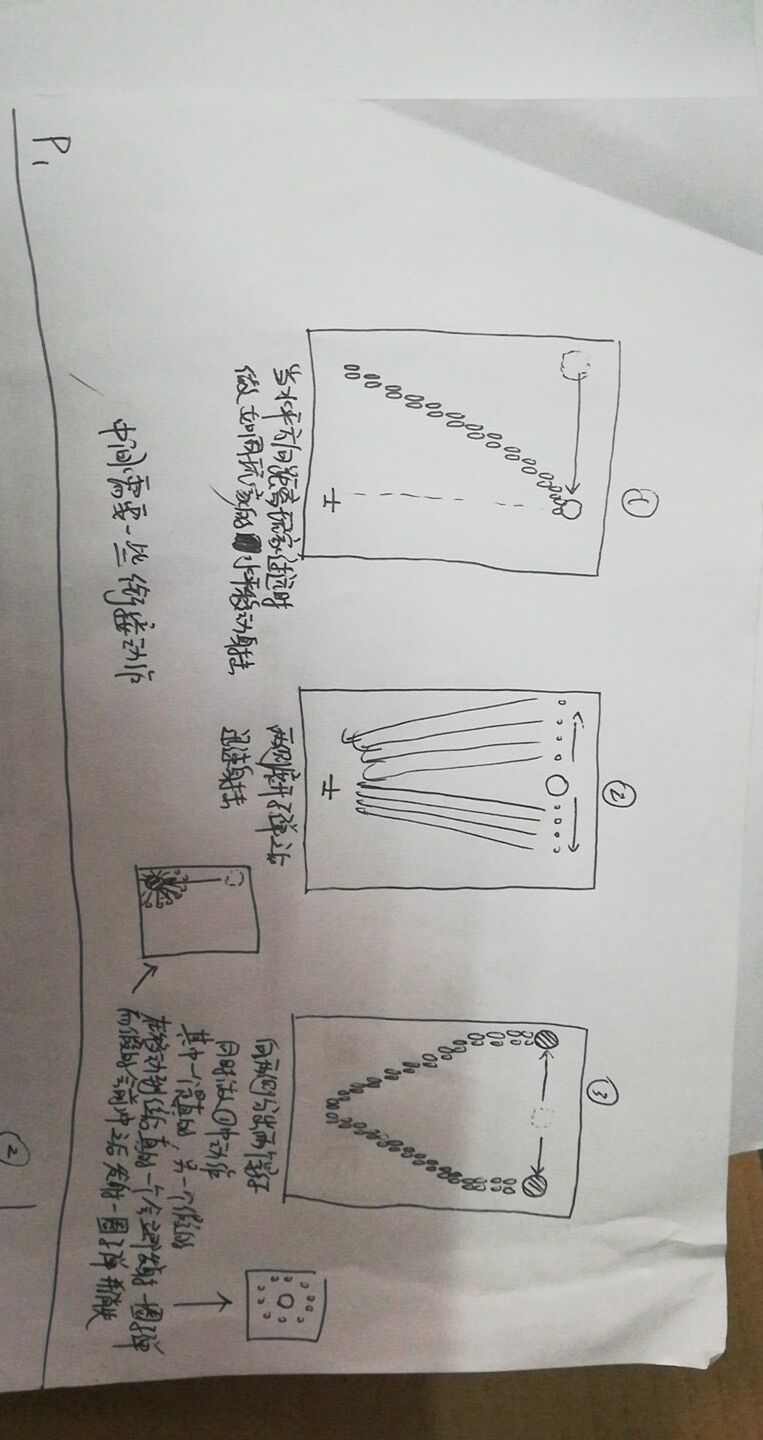 ①
②
③
当水平方向距离玩家过远时
做如同玩家的水平移动射击
两侧展开子弹之后
迅速射击
向两侧分出两个影子
同时做①中动作
其中一个是真的，另一个假的
在移动到位后真的一个会立即发射一圈子弹
而假的会前冲之后发射一圈子弹并消失
中间需要一些衔接动作
P1
②